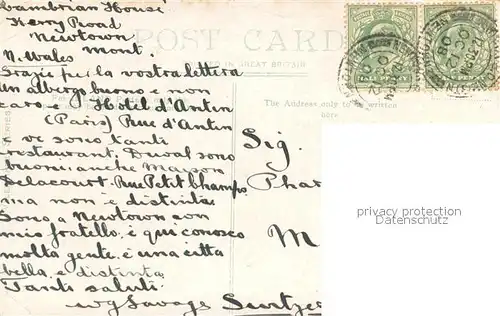 Cambrian House
Kerry Road
Newtown
Mont.
N. Wales
POST CARD
PRINTED IN GREAT BRITAIN
Grazie per la vostra lettera
un albergo buono e non
caro e Hotel d'Antin
(Paris) Rue d'Antin
e ve sono tanti
restaurant. Duval sono
buoni anche Maison
Delacourt. Rue Petit Champs
ma non e distinta
Sono a Newtown con
mio fratello, è qui conosco
molta gente, è una citta
bella, e distinta
Tanti saluti
W G Savage
The Address only to be written
here.
Sig.
Phar
M
Switze
HALFPENNY
privacy protection